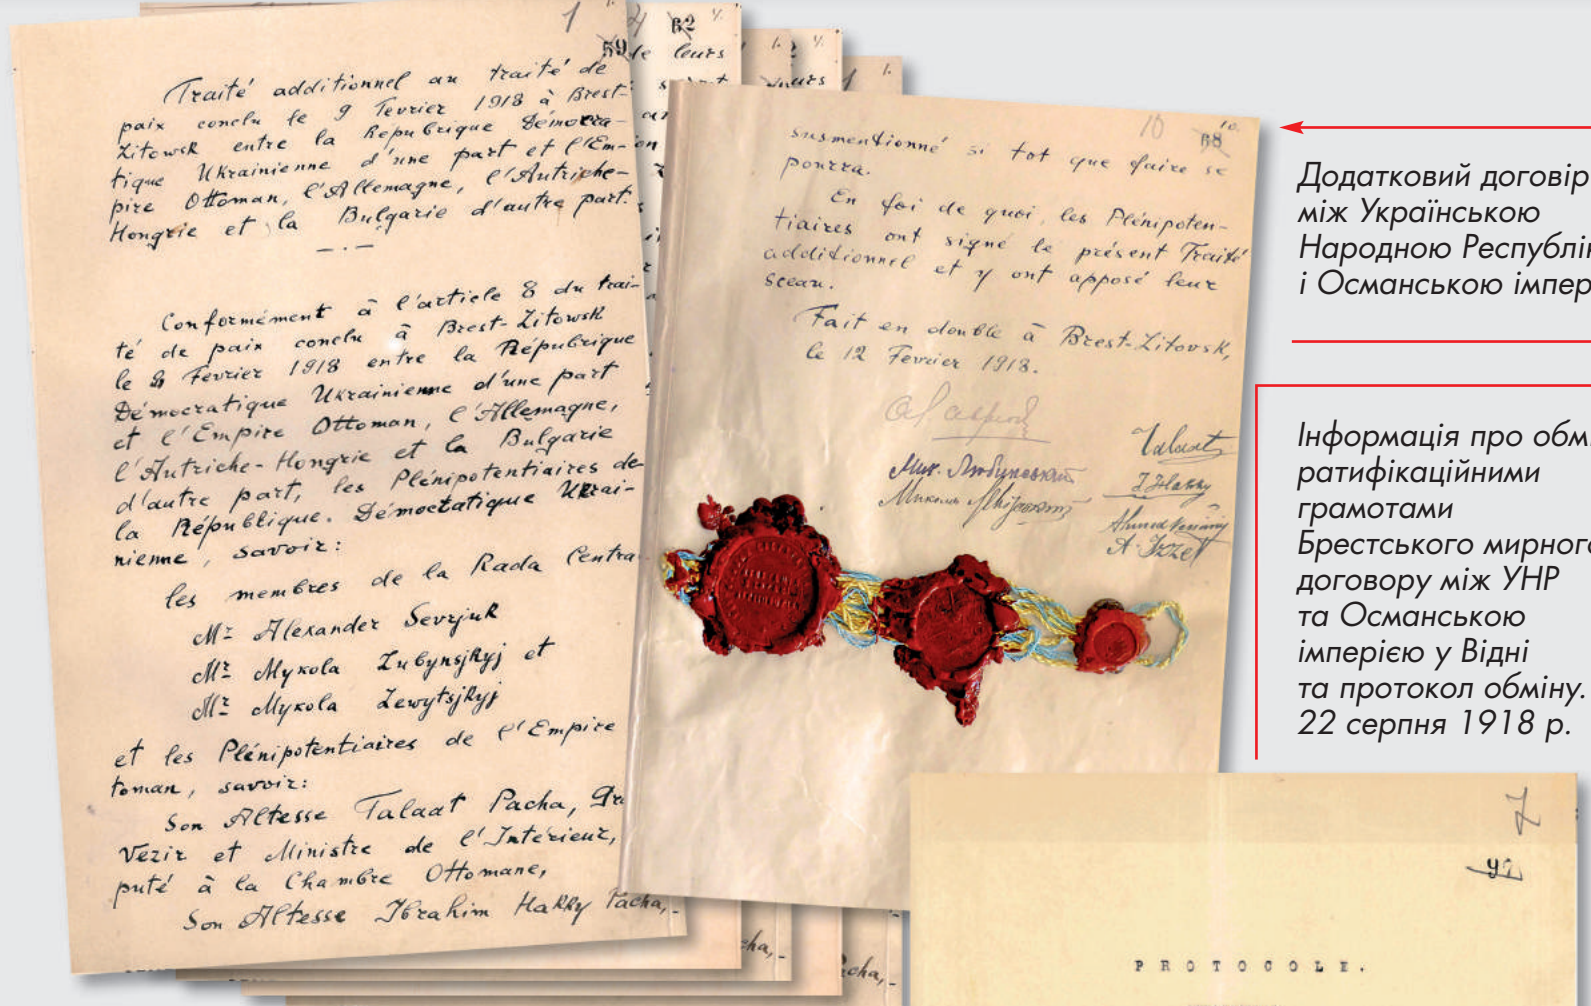 1
59
Traité additionnel au traité de
paix conclu le 9 Fevrier 1918 à Brest-
Litowsk entre la Republique Démocra-
tique Ukrainienne d'une part et l'Em-
pire Ottoman, l'Allemagne, l'Autriche-
Hongrie et la Bulgarie d'autre part.
Conformément à l'article 8 du trai-
té de paix conclu à Brest-Litowsk
le 9 Fevrier 1918 entre la République
Démocratique Ukrainienne d'une part
et l'Empire Ottoman, l'Allemagne,
l'Autriche-Hongrie et la Bulgarie
d'autre part, les Plénipotentiaires de
la République Démocratique Ukrai-
nienne, savoir:
les membres de la Rada Centra
Mr Alexander Sevrjuk
Mr Mykola Lubynsjkyj et
Mr Mykola Lewytsjkyj
et les Plénipotentiaires de l'Empire
toman, savoir:
Son Altesse Talaat Pacha, Gr
Vezir et Ministre de l'Intérieur,
puté à la Chambre Ottomane,
Son Altesse Ibrahim Hakky Pacha,
62
de leurs
10
68
10.
susmentionné si tot que faire se
pourra.
En foi de quoi, les Plénipoten-
tiaires ont signé le présent Traité
additionnel et y ont apposé leur
sceau.
Fait en double à Brest-Litovsk,
le 12 Fevrier 1918.
Talaat
Мик. Любинський
I Hakky
Микола Левитський
A. Izzet
cha,
cha,
Додатковий договір
між Українською
Народною Республік
і Османською імпер
Інформація про обмі
ратифікаційними
грамотами
Брестського мирного
договору між УНР
та Османською
імперією у Відні
та протокол обміну.
22 серпня 1918 р.
7
PROTOCOLE.